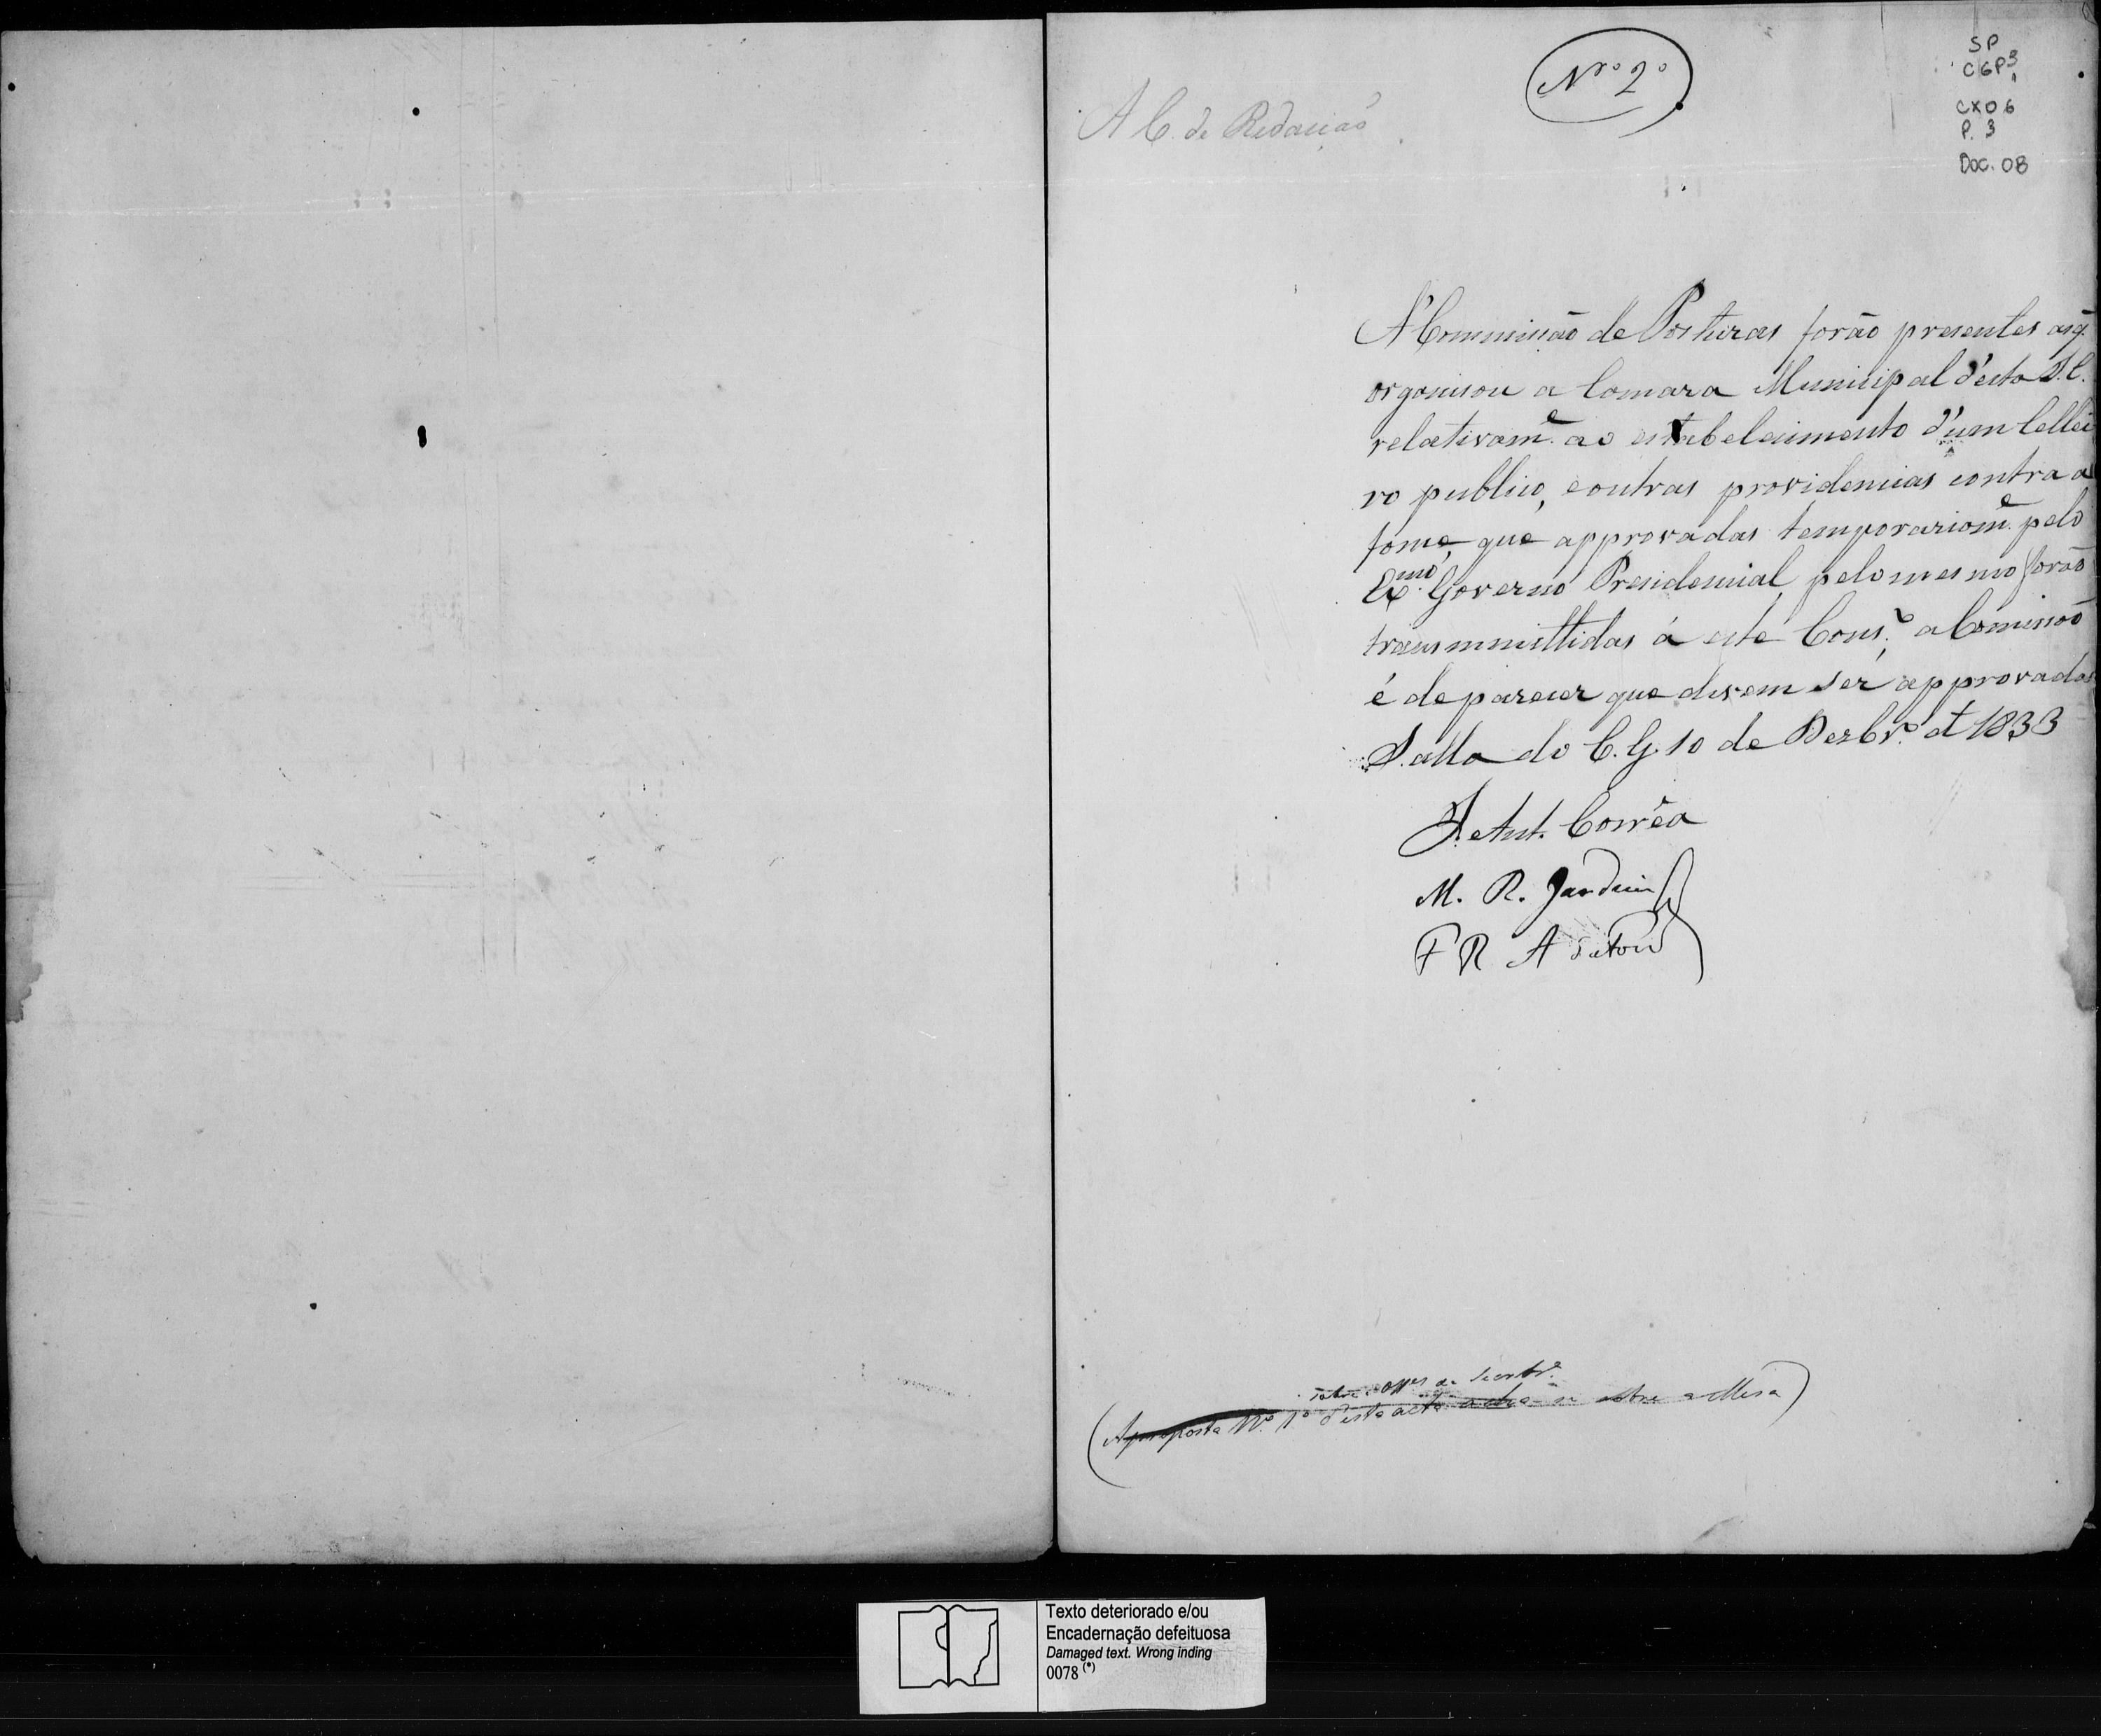 Nro 2o
SP
CGP3
CX06
P. 3
Doc. 08
A C. de Redacçaõ
A' Commissaõ de Posturas foraõ presentes as q.
organisou a Camara Municipal d'esta I. C.
relativame. ao estabelecimento d'um Cellei
ro publico, e outras providencias contra a
fome, que approvadas temporariame. pelo
Exmo. Governo Presidencial, pelo mesmo foraõ
transmmittidas á este Conso.; a Comissaõ
é de parecer que devem ser approvadas
Salla do C. G. 10 de Dezbro. d 1833
J. Ant. Corrêa
M. R. Jardim
F R A
(A proposta No. 1o d'esta acta acha-se sobre a Mesa)
Texto deteriorado e/ou
Encadernação defeituosa
Damaged text. Wrong inding
0078 (*)